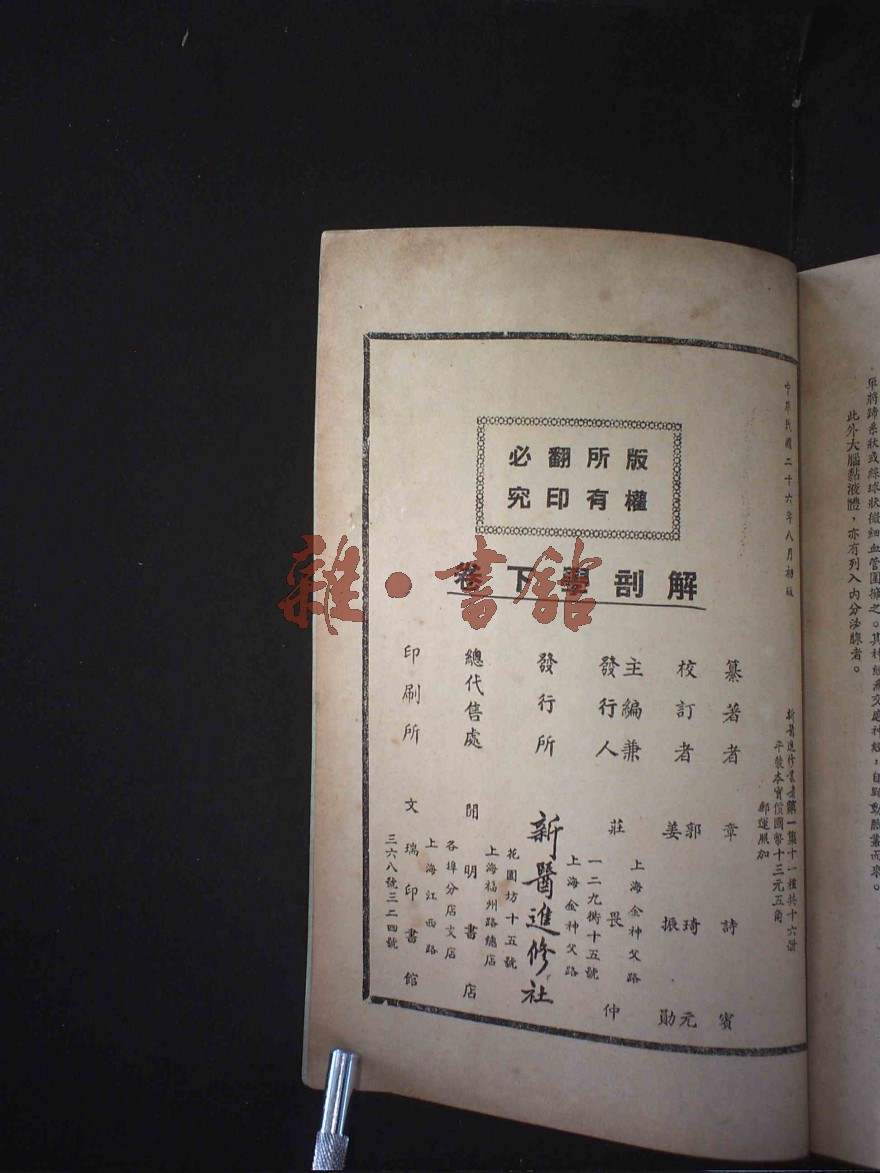 單將蹄系狀或絲球狀微細血管圍擁之。其神經為交感神經，自
此外大腦黏液體，亦有列入內分泌腺者。
中華民國二十六年八月初版
版權所有翻印必究
解剖學下卷
新醫進修叢書第一集十一種共十六冊
平裝本實價國幣十三元五角
郵運匯加
纂著者 章詩賓
校訂者 郭琦元
姜振勛
主編兼發行人 莊畏仲
上海金神父路
一二九街十五號
發行所 新醫進修社
上海金神父路
花園坊十五號
總代售處 開明書店
上海福州路總店
各埠分店支店
印刷所 文瑞印書館
上海江西路
三六八號三二四號
雜·書館